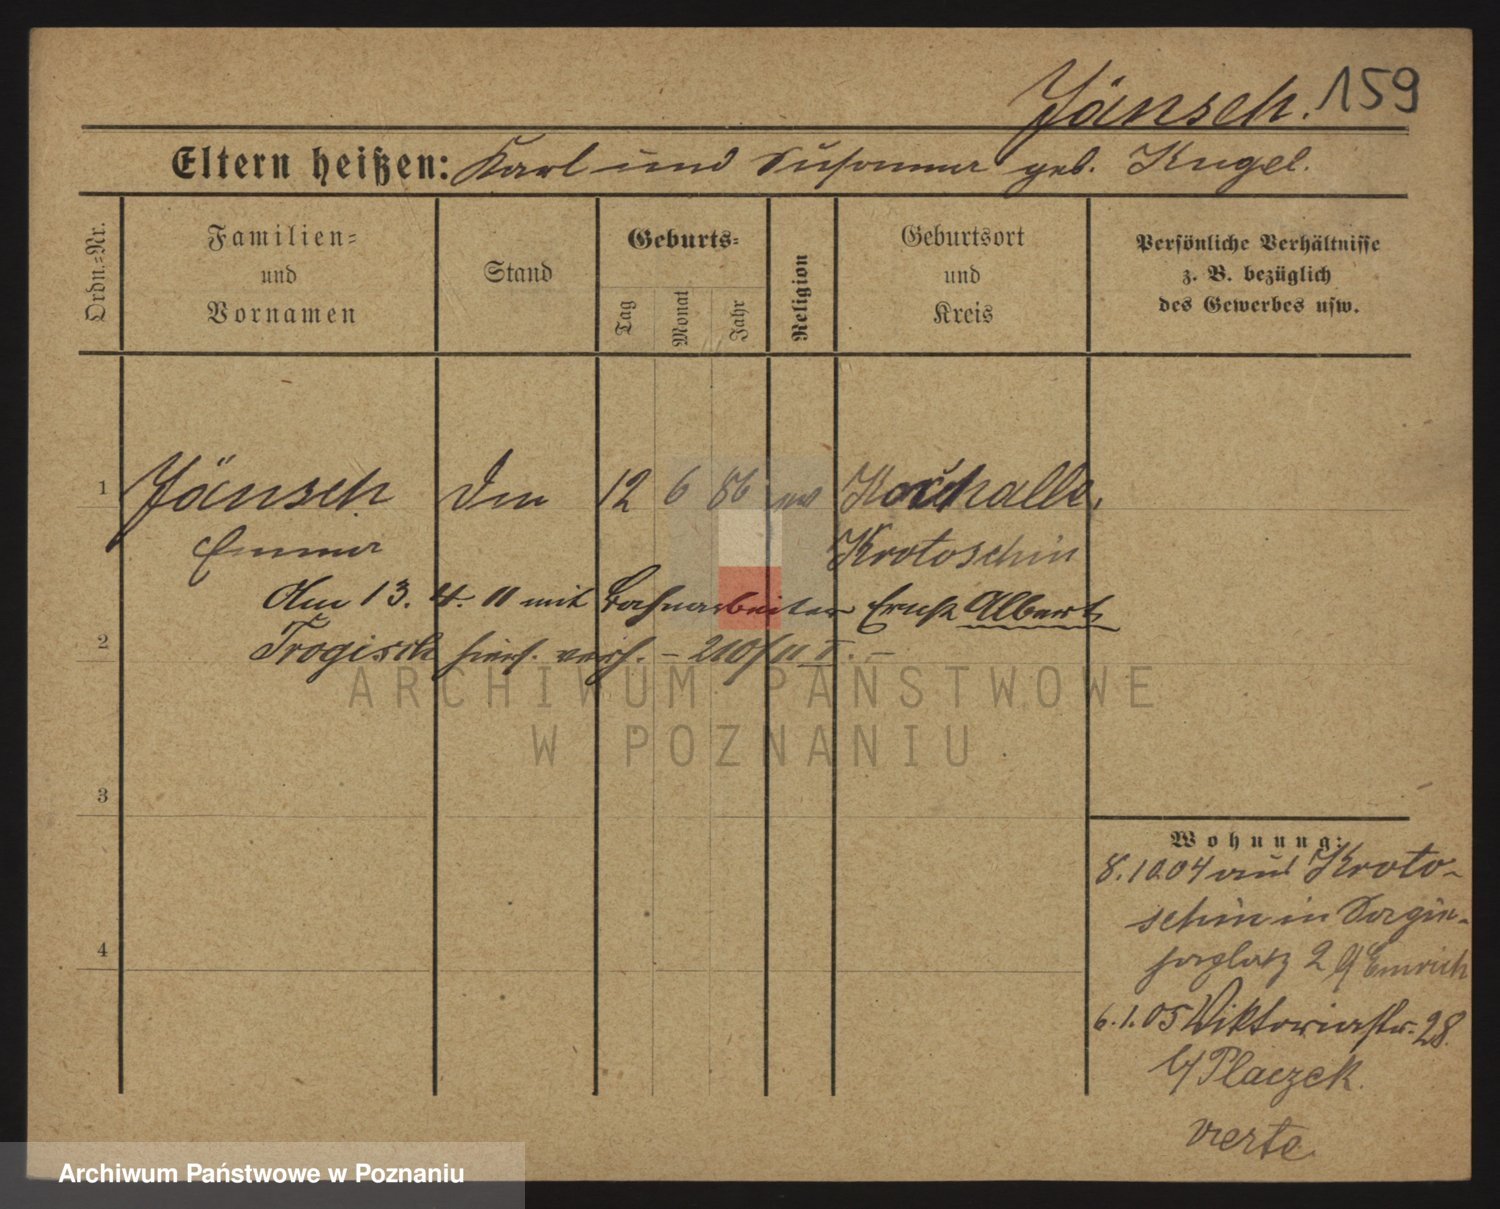 Jänsch. 159
Eltern heißen: Karl und Susanna geb. Kugel.
Ordn.=Nr.
Familien=
und
Vornamen
Stand
Geburts=
Tag
Monat
Jahr
Religion
Geburtsort
und
Kreis
Persönliche Verhältnisse
z. B. bezüglich
des Gewerbes usw.
1 Jänsch 12 6 86 ev
Emma Krotoschin
Am 13. 4. 11 mit Bahnarbeiter Ernst Albert
2 Trogisch hier verh. – 210/11 –
3
4
Wohnung:
8.10.04 aus Kroto-
schin in
2 Emrich
6.1.05 Viktoriastr. 28
b/ Placzek
ARCHIWUM PAŃSTWOWE
W POZNANIU
Archiwum Państwowe w Poznaniu